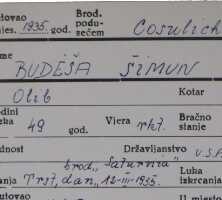 utovao Brod.
njes. 1935. god. podu-
sečem Cosulich
me BUDËŠA ŠIMUN
Olib Kotar
odini
eka 49 god. Vjera rkt. Bračno
stanje
dnost Državljanstvo U.S.A
brod „Saturnia"
anja Trst, dan „12-III-1935. Luka
iskrcanja
utovao